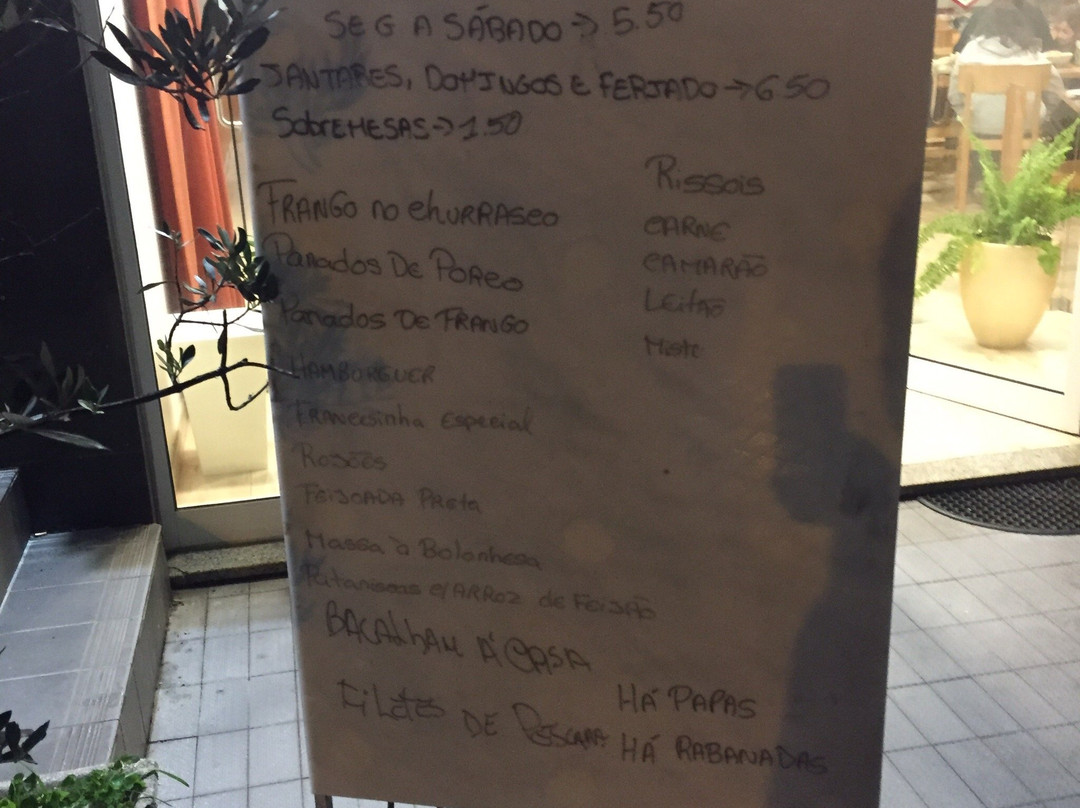 SEG A SÁBADO → 5.50
JANTARES, DOMINGOS E FERIADO → 6.50
SobrEMESAS → 1.50
FRANGO no chURRASCO
Panados De Porco
Panados DE FRANGO
HAMBURGUER
FRANCESinha Especial
Rojões
FEIJOADA Preta
Massa à Bolonhesa
Pataniscas c/ARROZ de FEIJÃO
BACAlhAU Á CASA
FiLetes DE PESCADA
Rissois
CARNE
CAMARÃO
Leitão
Misto
HÁ PAPAS
HÁ RABANADAS